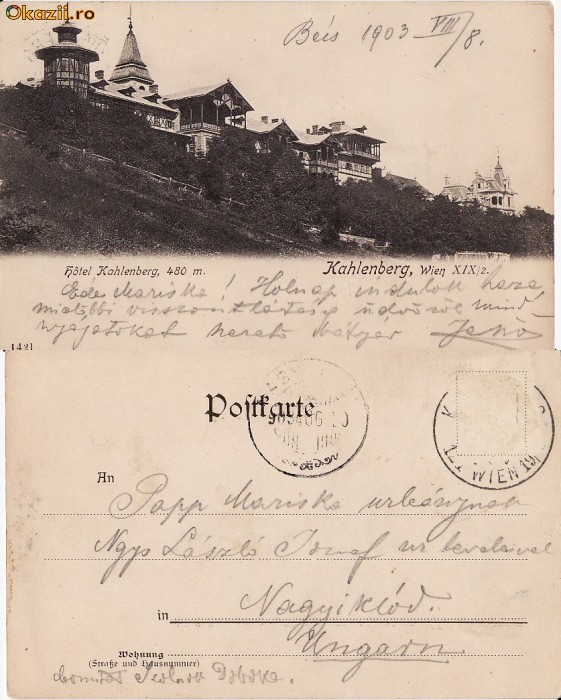 Okazii.ro
Bécs 1903 VIII/8.
Hôtel Kahlenberg, 480 m.
Kahlenberg, Wien XIX/2.
Édes Mariska! Holnap indulok haza,
mielőbbi viszontlátásig üdvözöl mind
nyájatokat szerető bátyad Jenő
1421
Postkarte
An
Papp Mariska urleánynak
Ngys László József ur leveleivel
in
Nagyiklód.
Ungarn
Wohnung
(Straße und Hausnummer)
Doboka.
WIEN 19